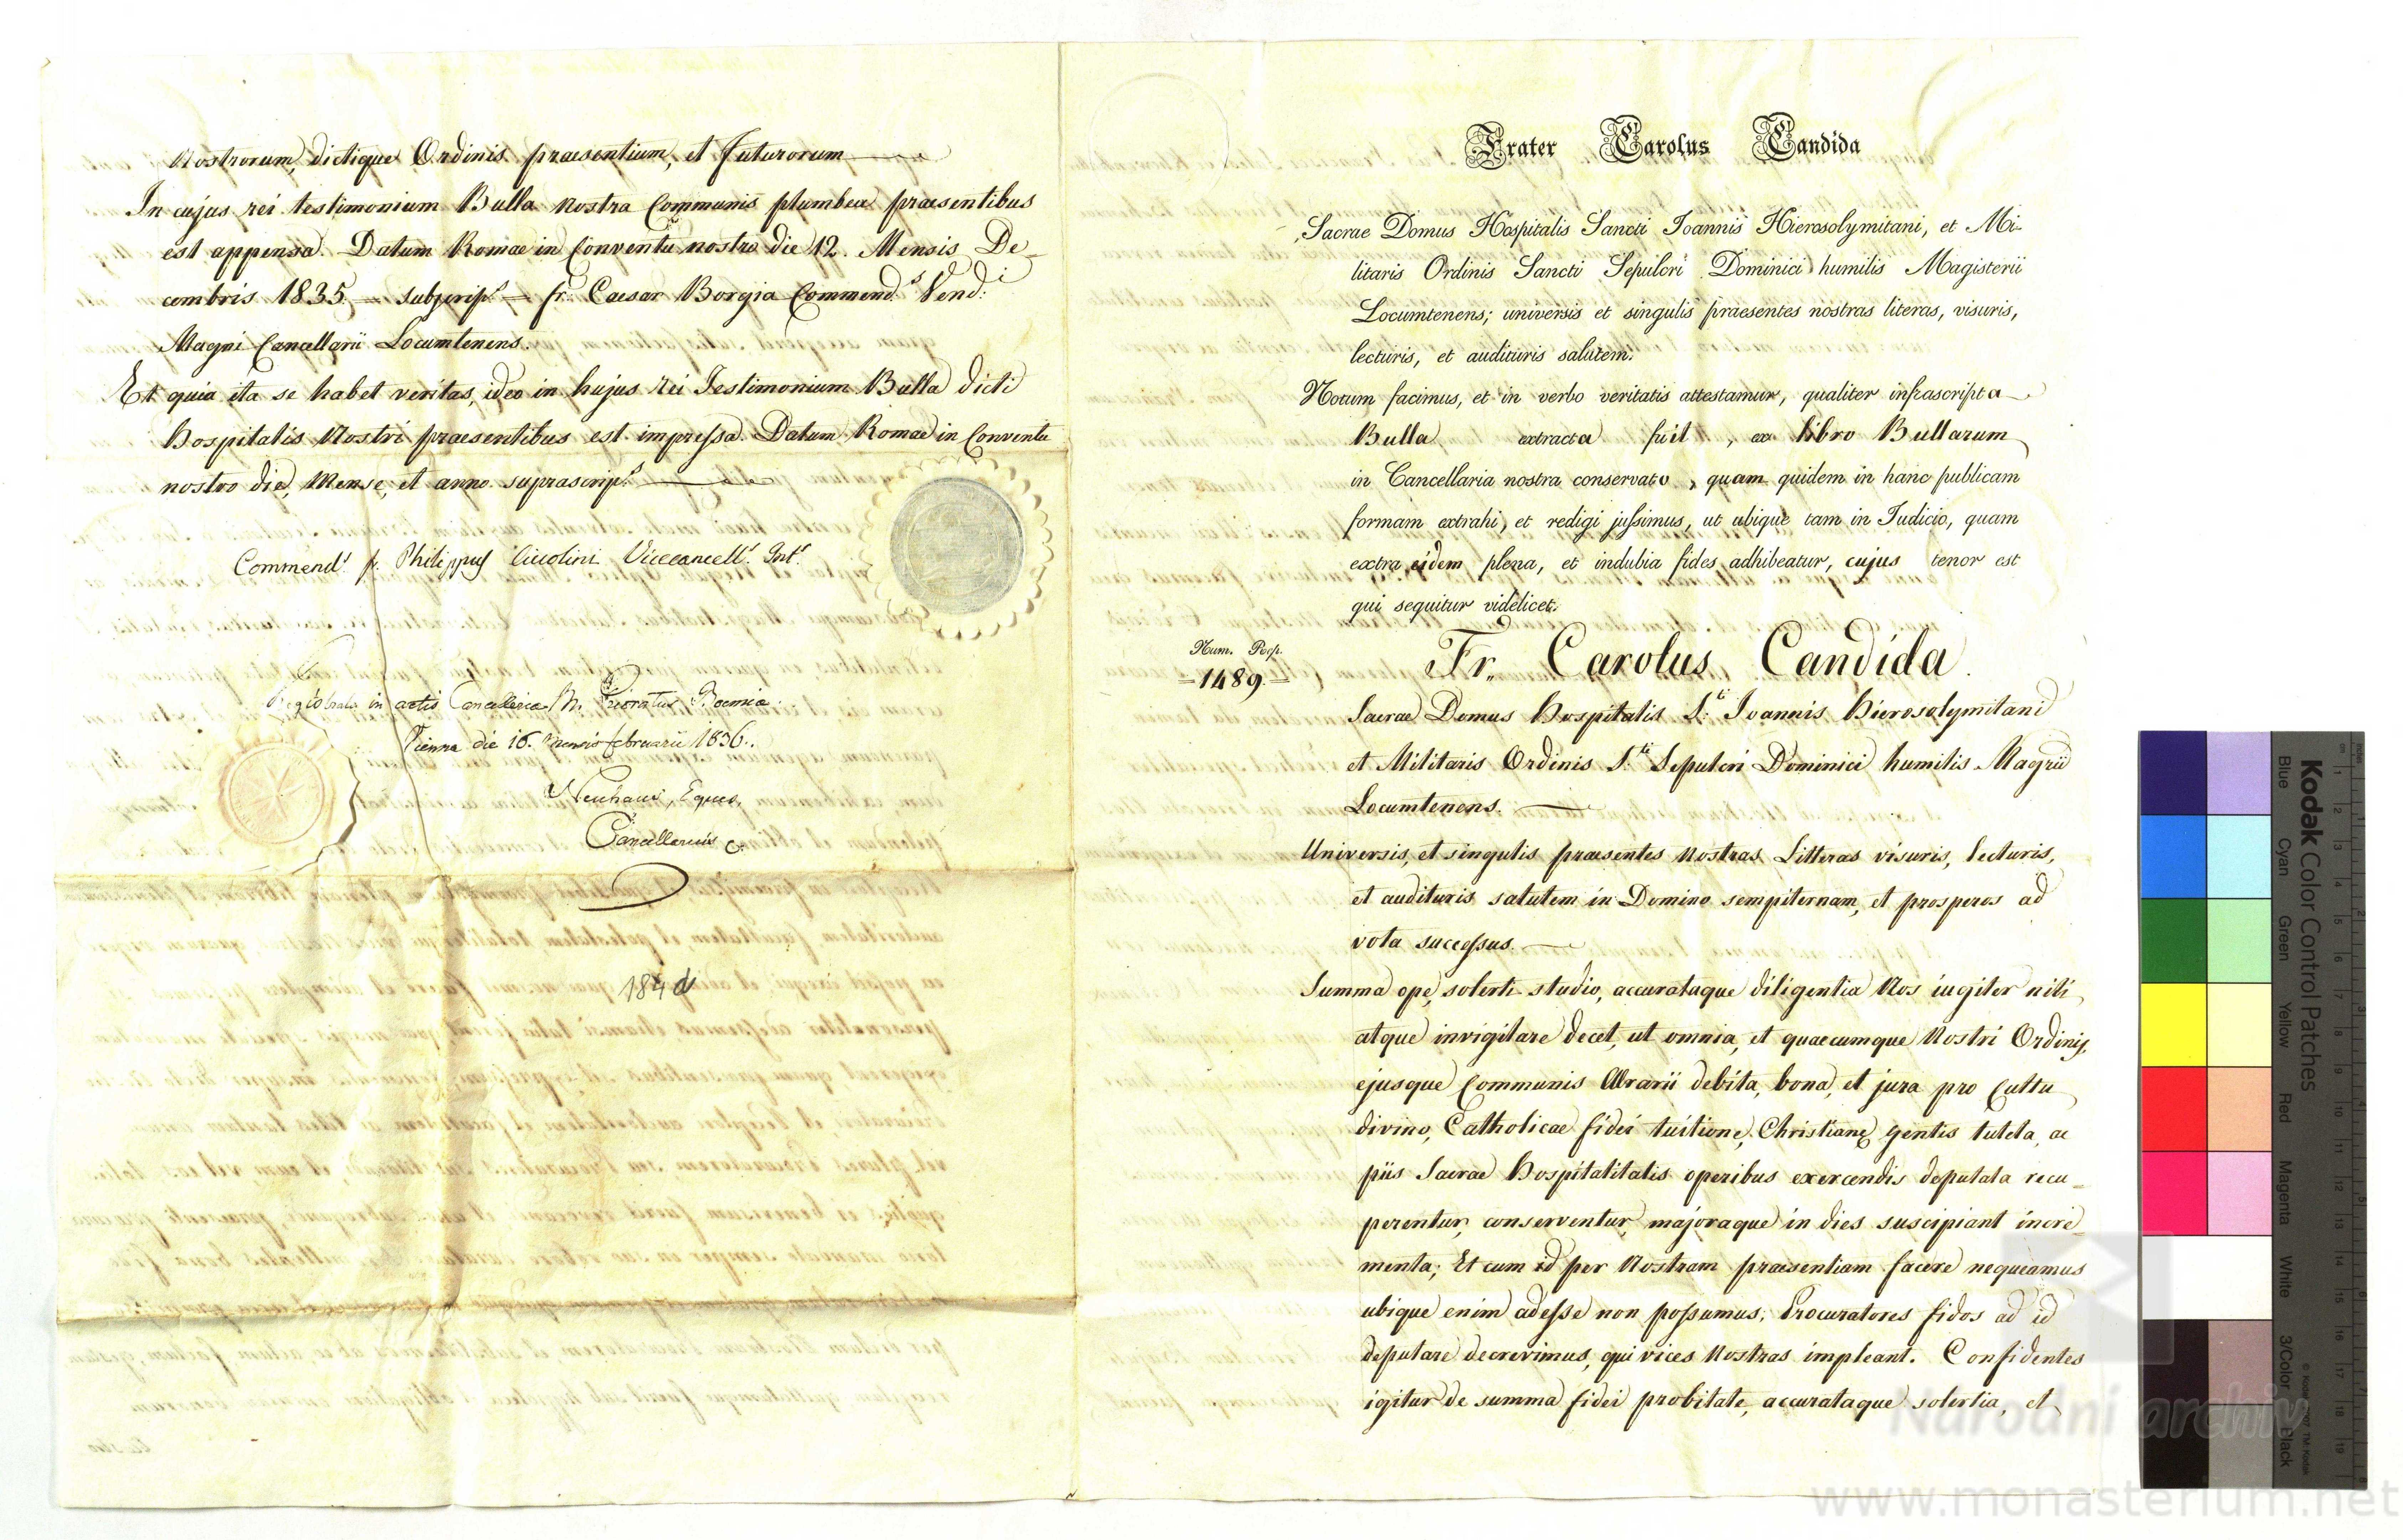 Nostrorum, dictique Ordinis praesentium, et futurorum
In cujus rei testimonium Bulla nostra Communis plumbea praesentibus
est appensa. Datum Romae in Conventu nostro die 12. Mensis De-
cembris 1835 = subscrips. = fr. Caesar Borgia Commend.s Vend.i
Magni Cancellarii Locumtenens.
Et quia ita se habet veritas, ideo in hujus rei Testimonium Bulla dicti
Hospitalis Nostri praesentibus est impressa. Datum Romae in Conventu
nostro die, Mense, et anno suprascrip.s
Commend.r fr. Philippus Ciccolini Vicecancell.s Int.s
in actis Cancellariae M. Prioratus Boemiae.
Vienna die 16. Mensis februarii 1836.
Neuhaus, Eques,
Cancellarius
184 d
Frater Carolus Candida
Sacrae Domus Hospitalis Sancti Joannis Hierosolymitani, et Mi-
litaris Ordinis Sancti Sepulcri Dominici humilis Magisterii
Locumtenens; universis et singulis praesentes nostras literas, visuris,
lecturis, et audituris salutem.
Notum facimus, et in verbo veritatis attestamur, qualiter infrascripta
Bulla extracta fuit, ex libro Bullarum
in Cancellaria nostra conservato, quam quidem in hanc publicam
formam extrahi, et redigi jussimus, ut ubique tam in Judicio, quam
extra eidem plena, et indubia fides adhibeatur, cujus tenor est
qui sequitur videlicet.
Num. Reg.
=1489.=
Fr. Carolus Candida.
Sacrae Domus Hospitalis S.ti Joannis Hierosolymitani
et Militaris Ordinis S.ti Sepulcri Dominici humilis Magrii
Locumtenens.
Universis, et singulis praesentes Nostras Litteras visuris, lecturis,
et audituris salutem in Domino sempiternam, et prosperos ad
vota sucessus.
Summa ope, solerti studio, accurataque diligentia Nos jugiter niti,
atque invigilare decet, ut omnia, et quaecumque Nostri Ordinis,
ejusque Communis Ærarii debita, bona, et jura pro Cultu
divino, Catholicae fidei tuitione, Christianę gentis tutela, ac
piis Sacrae Hospitalitatis operibus exercendis deputata recu-
perentur, conserventur, majoraque in dies suscipiant incre-
menta; Et cum id per Nostram praesentiam facere nequeamus
ubique enim adesse non possumus; Procuratores fidos ad id
deputare decrevimus, qui vices Nostras impleant. Confidentes
igitur de summa fidei probitate, accurataque solertia, et
Kodak Color Control Patches
Blue
Cyan
Green
Yellow
Red
Magenta
White
3/Color
Black
Národní archiv
www.monasterium.net